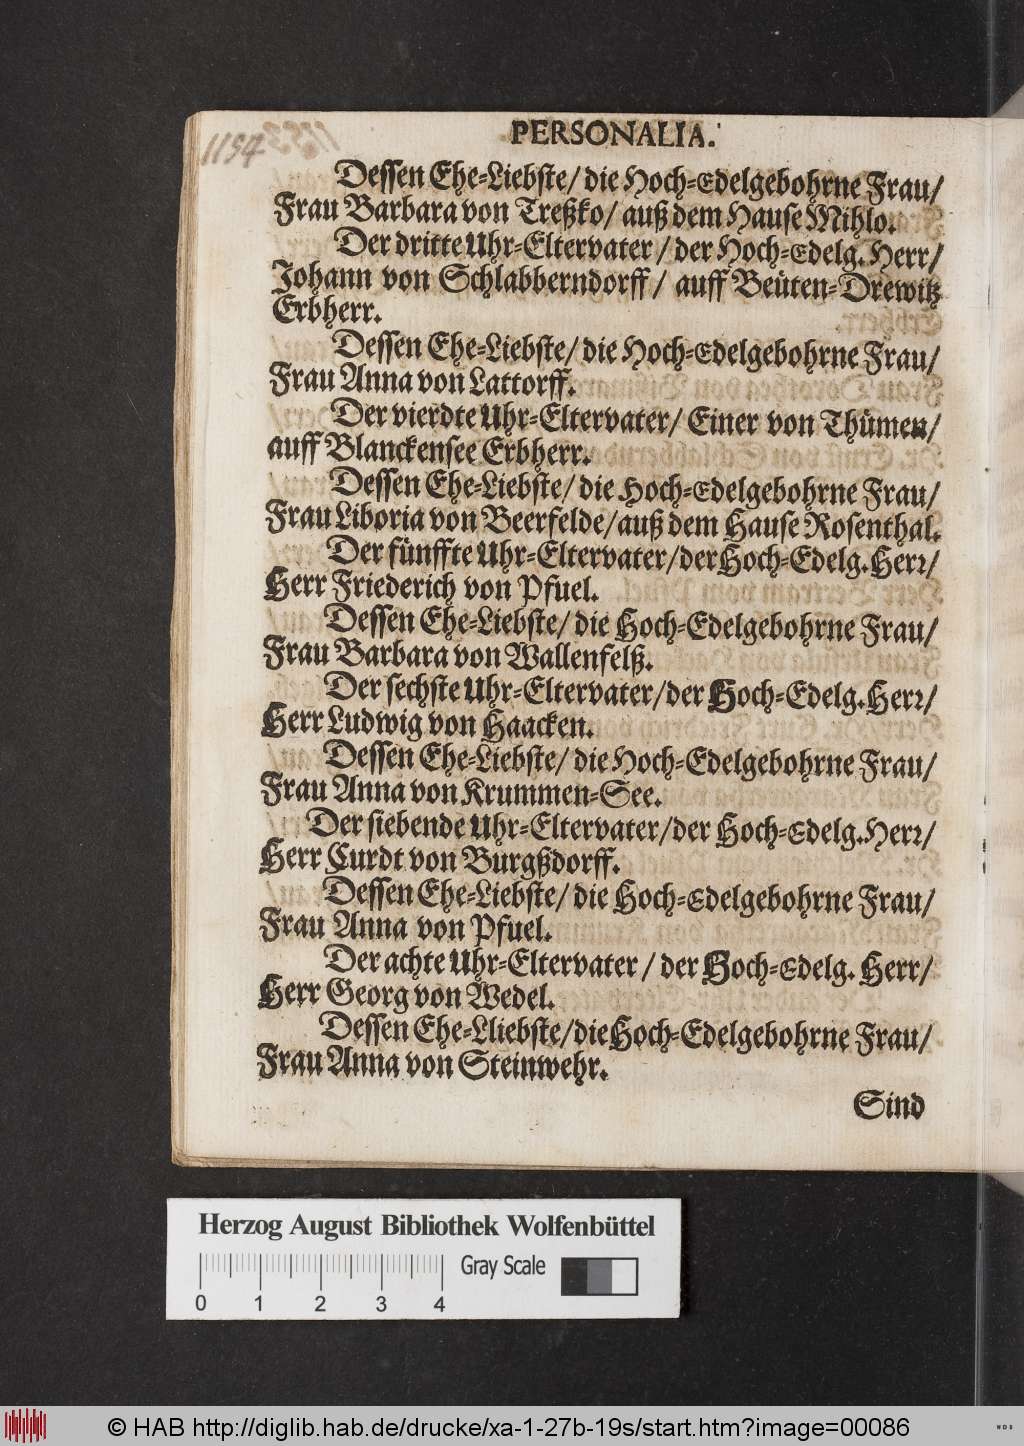 1154
PERSONALIA.
Dessen Ehe-Liebste/ die Hoch-Edelgebohrne Frau/
Frau Barbara von Treßko/ auß dem Hause Mihlo.
Der dritte Uhr-Eltervater / der Hoch-Edelg. Herr/
Johann von Schlabberndorff/ auff Beüten-Drewitz
Erbherr.
Dessen Ehe-Liebste/ die Hoch-Edelgebohrne Frau/
Frau Anna von Lattorff.
Der vierdte Uhr-Eltervater/ Einer von Thümen/
auff Blanckensee Erbherr.
Dessen Ehe-Liebste/ die Hoch-Edelgebohrne Frau/
Frau Liboria von Beerfelde/ auß dem Hause Rosenthal.
Der fünffte Uhr-Eltervater/ der Hoch-Edelg. Herr/
Herr Friederich von Pfuel.
Dessen Ehe-Liebste/ die Hoch-Edelgebohrne Frau/
Frau Barbara von Wallenfelß.
Der sechste Uhr-Eltervater/ der Hoch-Edelg. Herr/
Herr Ludwig von Haacken.
Dessen Ehe-Liebste/ die Hoch-Edelgebohrne Frau/
Frau Anna von Krummen-See.
Der siebende Uhr-Eltervater/ der Hoch-Edelg. Herr/
Herr Curdt von Burgßdorff.
Dessen Ehe-Liebste/ die Hoch-Edelgebohrne Frau/
Frau Anna von Pfuel.
Der achte Uhr-Eltervater / der Hoch-Edelg. Herr/
Herr Georg von Wedel.
Dessen Ehe-Lliebste/ die Hoch-Edelgebohrne Frau/
Frau Anna von Steinwehr.
Sind
Herzog August Bibliothek Wolfenbüttel
Gray Scale
0 1 2 3 4
© HAB http://diglib.hab.de/drucke/xa-1-27b-19s/start.htm?image=00086